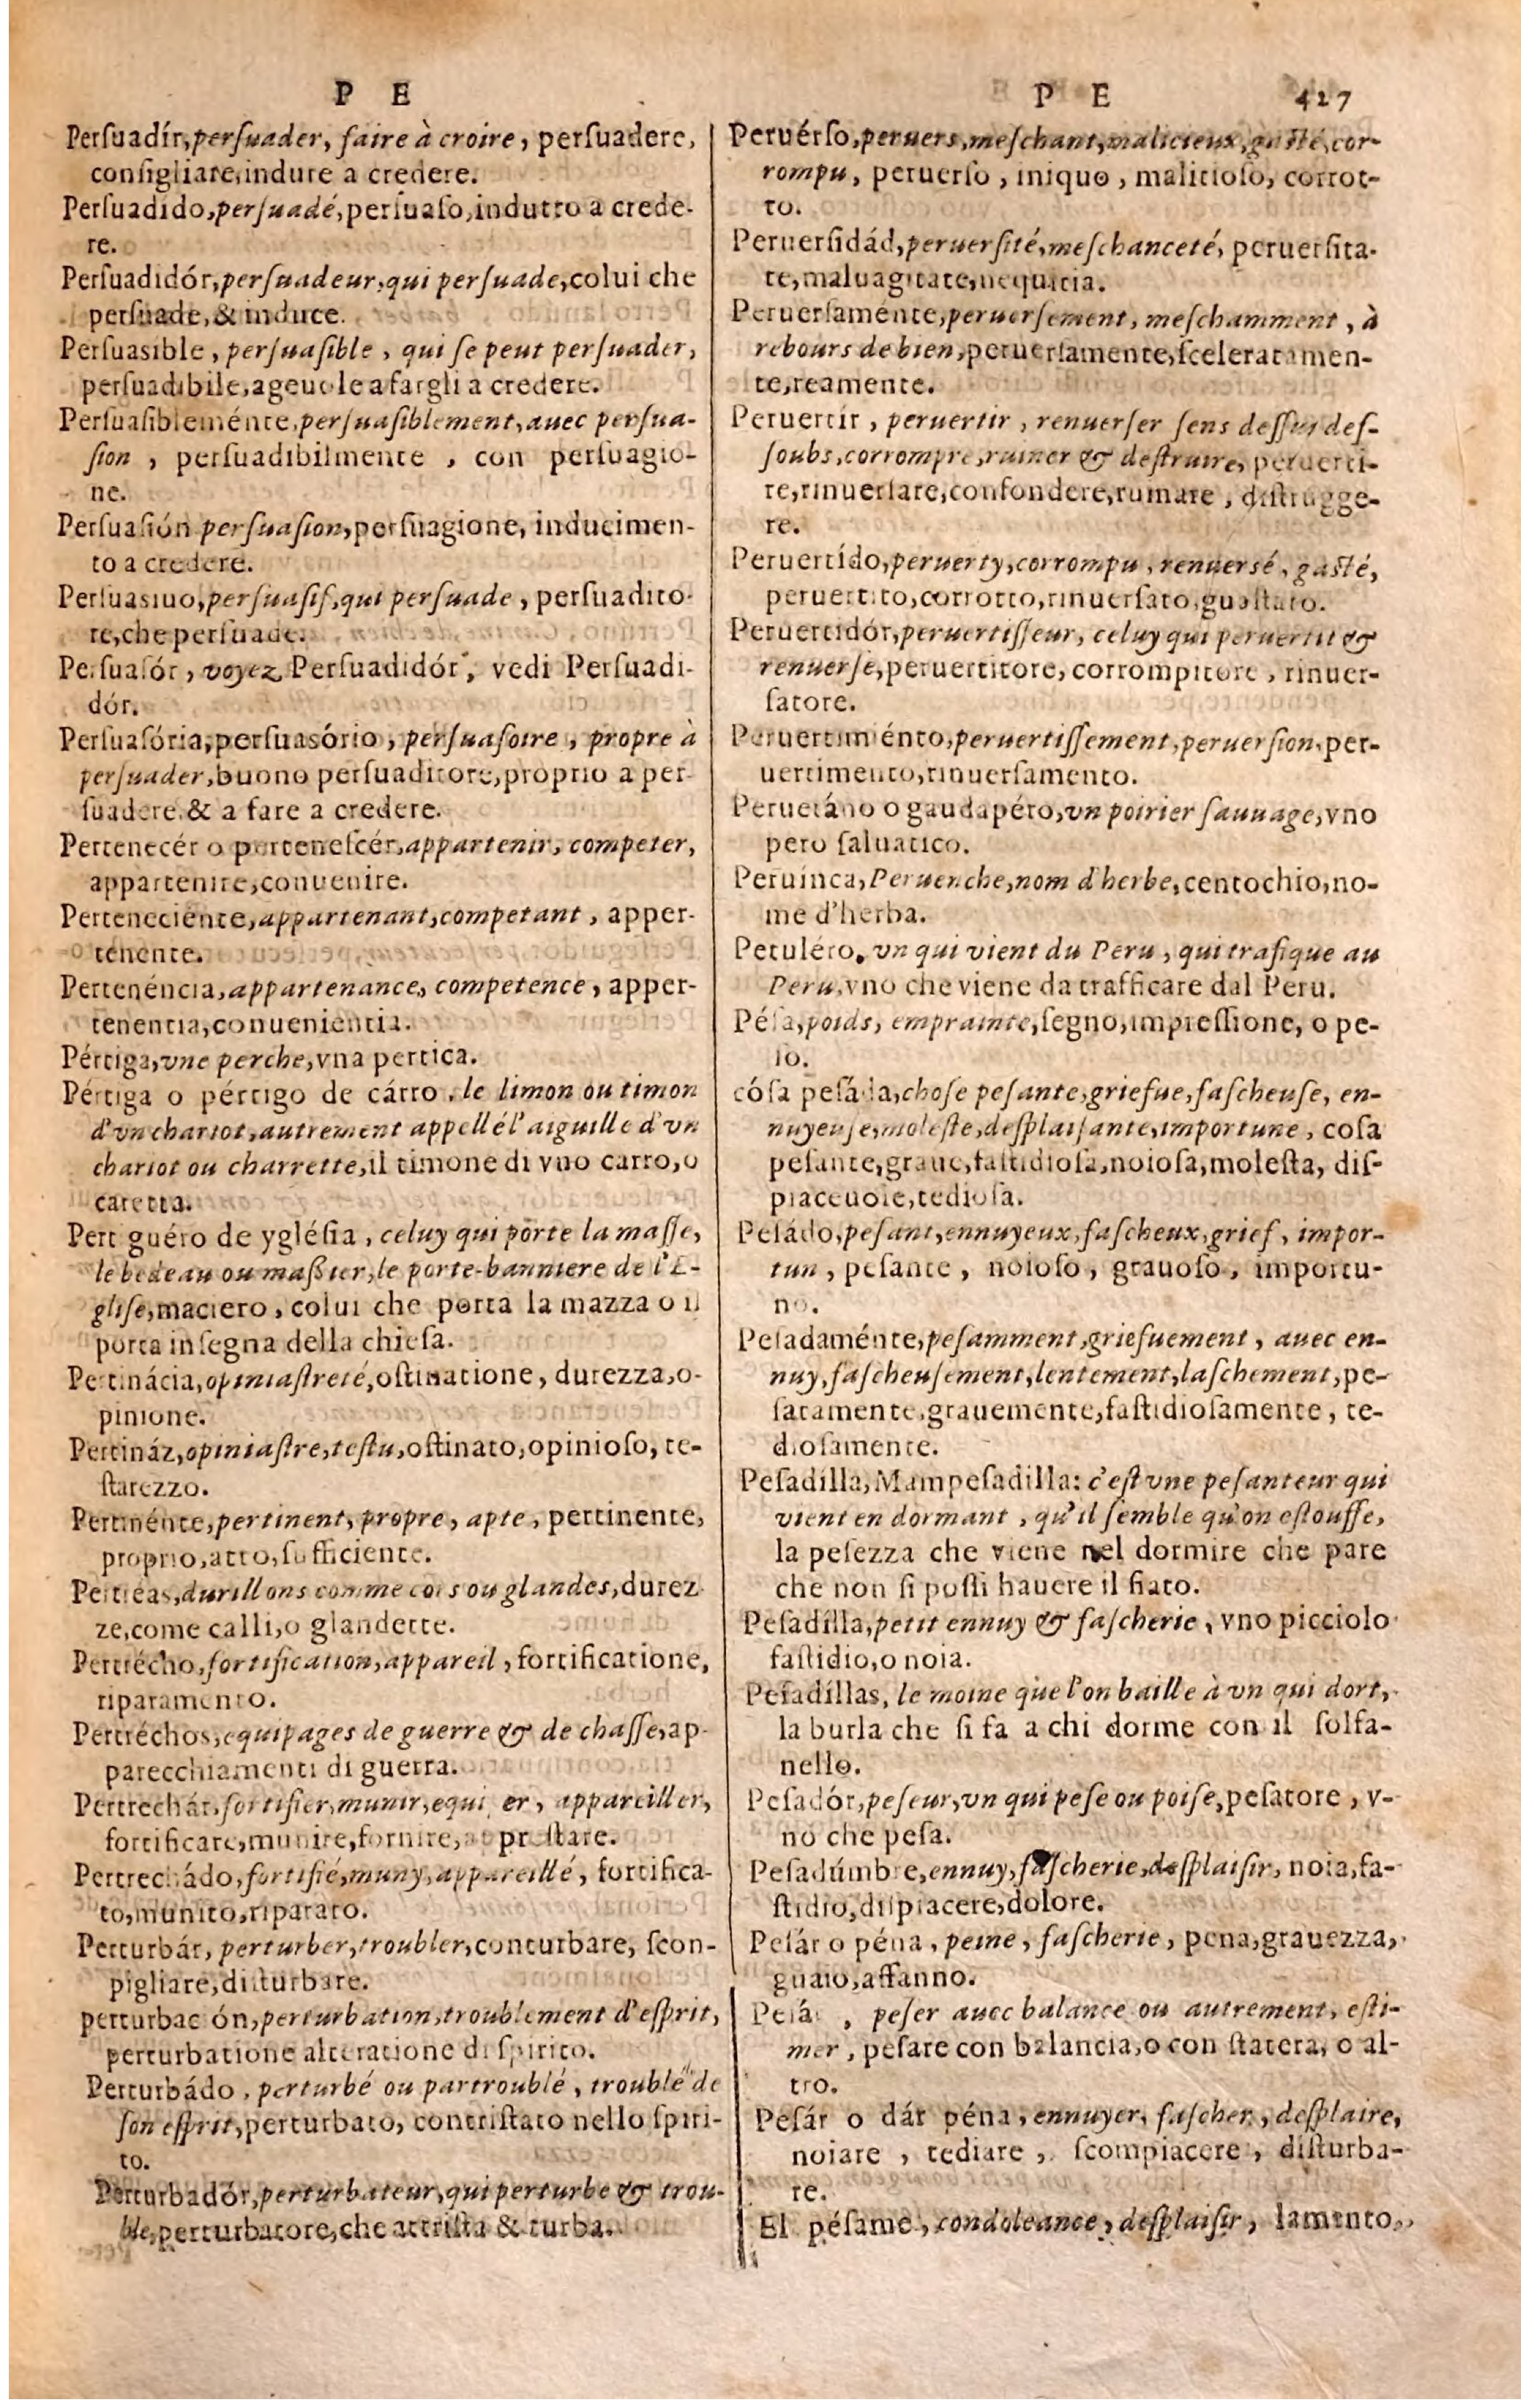 P E
Perſuadír, perſuader, faire à croire, perſuadere,
conſigliare, indure a credere.
Perſuadido, perſuadé, perſuaſo, indutto a crede-
re.
Perſuadidór, perſuadeur, qui perſuade, colui che
perſuade, & induce.
Perſuasible, perſuaſible, qui ſe peut perſuader,
perſuadibile, ageuole a fargli a credere.
Perſuaſibleménte, perſuaſiblement, auec perſua-
ſion, perſuadibilmente, con perſuagio-
ne.
Perſuasión perſuaſion, perſuagione, inducimen-
to a credere.
Perſuasiuo, perſuaſif, qui perſuade, perſuadito-
re, che perſuade.
Perſuaſór, voyez Perſuadidór, vedi Perſuadi-
dór.
Perſuaſória, perſuasório, perſuaſoire, propre à
perſuader, buono perſuaditore, proprio a per-
ſuadere & a fare a credere.
Pertenecér o perteneſcér, appartenir, competer,
appartenire, conuenire.
Perteneciénte, appartenant, competant, apper-
tenente.
Pertenéncia, appartenance, competence, apper-
tenentia, conuenientia.
Pértiga, vne perche, vna pertica.
Pértiga o pértigo de cárro, le limon ou timon
d'vn chariot, autrement appellé l'aiguille d'vn
chariot ou charrette, il timone di vno carro, o
caretta.
Pert guéro de ygléſia, celuy qui porte la maſſe,
le bedeau ou maßier, le porte-banniere de l'E-
gliſe, maciero, colui che porta la mazza o il
porta inſegna della chieſa.
Pertinácia, opiniaſtreté, oſtinatione, durezza, o-
pinione.
Pertináz, opiniaſtre, teſtu, oſtinato, opinioſo, te-
ſtarezzo.
Pertinénte, pertinent, propre, apte, pertinente,
proprio, atto, ſufficiente.
Pertréas, durillons comme cors ou glandes, durez-
ze, come calli, o glandette.
Pertrécho, fortification, appareil, fortificatione,
riparamento.
Pertréchos, equipages de guerre & de chaſſe, ap-
parecchiamenti di guerra.
Pertrechár, fortifier, munir, equi er, appareiller,
fortificare, munire, fornire, ap preſtare.
Pertrechádo, fortifié, muny, appareillé, fortifica-
to, munito, riparato.
Perturbár, perturber, troubler, conturbare, ſcon-
pigliare, diſturbare.
perturbac ón, perturbation, troublement d'eſprit,
perturbatione alteratione di ſpirito.
Perturbádo, perturbé ou partroublé, troublé de
ſon eſprit, perturbato, contriſtato nello ſpiri-
to.
Perturbadór, perturbateur, qui perturbe & trou-
ble, perturbatore, che attriſta & turba.
P E 427
Peruérſo, peruers, meſchant, malicieux, gaſté, cor-
rompu, peruerſo, iniquo, malitioſo, corrot-
to.
Peruerſidád, peruerſité, meſchanceté, peruerſita-
te, maluagitate, nequitia.
Peruerſaménte, peruerſement, meſchamment, à
rebours de bien, peruerſamente, ſceleratamen-
te, reamente.
Peruertír, peruertir, renuerſer ſens deſſus deſ-
ſoubs, corrompre, ruiner & deſtruire, peruerti-
re, rinuerſare, confondere, ruinare, diſtrugge-
re.
Peruertído, peruerty, corrompu, renuersé, gaſté,
peruertito, corrotto, rinuerſato, guaſtato.
Peruertidór, peruertiſſeur, celuy qui peruertit &
renuerſe, peruertitore, corrompitore, rinuer-
ſatore.
Peruertimiénto, peruertiſſement, peruerſion, per-
uertimento, rinuerſamento.
Peruetáno o gaudapéro, vn poirier ſauuage, vno
pero ſaluatico.
Peruinca, Peruenche, nom d'herbe, centochio, no-
me d'herba.
Peruléro, vn qui vient du Peru, qui trafique au
Peru, vno che viene da trafficare dal Peru.
Péſa, poids, emprainte, ſegno, impreſſione, o pe-
ſo.
cóſa peſáda, choſe peſante, griefue, faſcheuſe, en-
nuyeuſe, moleſte, deſplaiſante, importune, coſa
peſante, graue, faſtidioſa, noioſa, moleſta, diſ-
piaceuole, tedioſa.
Peſádo, peſant, ennuyeux, faſcheux, grief, impor-
tun, peſante, noioſo, grauoſo, importu-
no.
Peſadaménte, peſamment, griefuement, auec en-
nuy, faſcheuſement, lentement, laſchement, pe-
ſatamente, grauemente, faſtidioſamente, te-
dioſamente.
Peſadilla, Mampeſadilla: c'eſt vne peſanteur qui
vient en dormant, qu'il ſemble qu'on eſtouffe,
la peſezza che viene nel dormire che pare
che non ſi poſſi hauere il fiato.
Peſadílla, petit ennuy & faſcherie, vno picciolo
faſtidio, o noia.
Peſadíllas, le moine que l'on baille à vn qui dort,
la burla che ſi fa a chi dorme con il ſolfa-
nello.
Peſadór, peſeur, vn qui peſe ou poiſe, peſatore, v-
no che peſa.
Peſadúmbre, ennuy, faſcherie, deſplaiſir, noia, fa-
ſtidio, diſpiacere, dolore.
Peſár o péna, peine, faſcherie, pena, grauezza,
guaio, affanno.
Peſá , peſer auec balance ou autrement, eſti-
mer, peſare con balancia, o con ſtatera, o al-
tro.
Peſár o dár péna, ennuyer, faſcher, deſplaire,
noiare, tediare, ſcompiacere, diſturba-
re.
El péſame, condoleance, deſplaiſir, lamento,